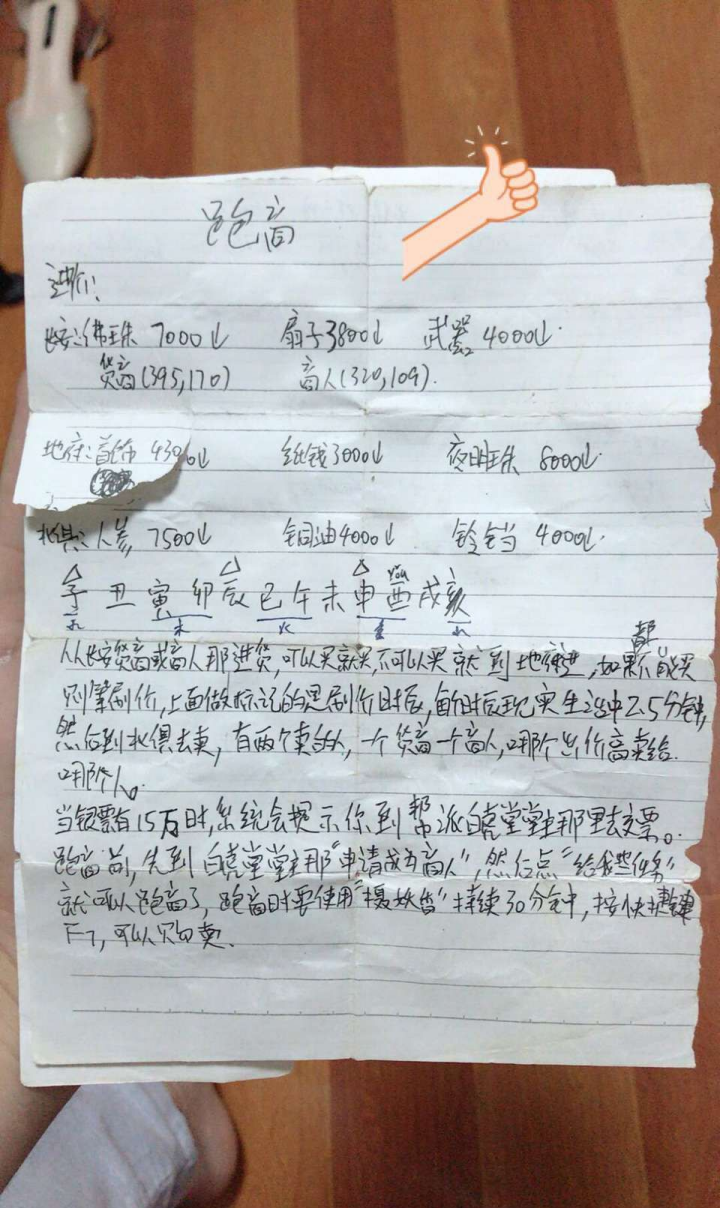 跑商
进价：
长安：佛珠 7000以 扇子3800以 武器 4000以.
货商(395,170) 商人(320,109).
地府：首饰 430 0以 纸钱3000以 夜明珠 6000以.
北俱：人参 7500以 铜油4000以 铃铛 4000以.
you
子 丑 寅 卯 辰 巳 午 未 申 酉 戌 亥
水 木 火 金 水
从长安货商或商人那进货,可以买就买,不可以买就到地府进,如果都不能买
则等刷价,上面做标记的是刷价时辰,每个时辰现实生活中2.5分钟,
然后到北俱去卖,有两个卖的人,一个货商一个商人,哪个出价高卖给
哪个人。
当银票有15万时,系统会提示你到帮派白虎堂堂主那里去交票。
跑商前,先到白虎堂堂主那“申请成为商人”,然后点“给我些任务”
就可以跑商了,跑商时要使用“摄妖香”持续30分钟,按快捷键
F7,可以购卖.